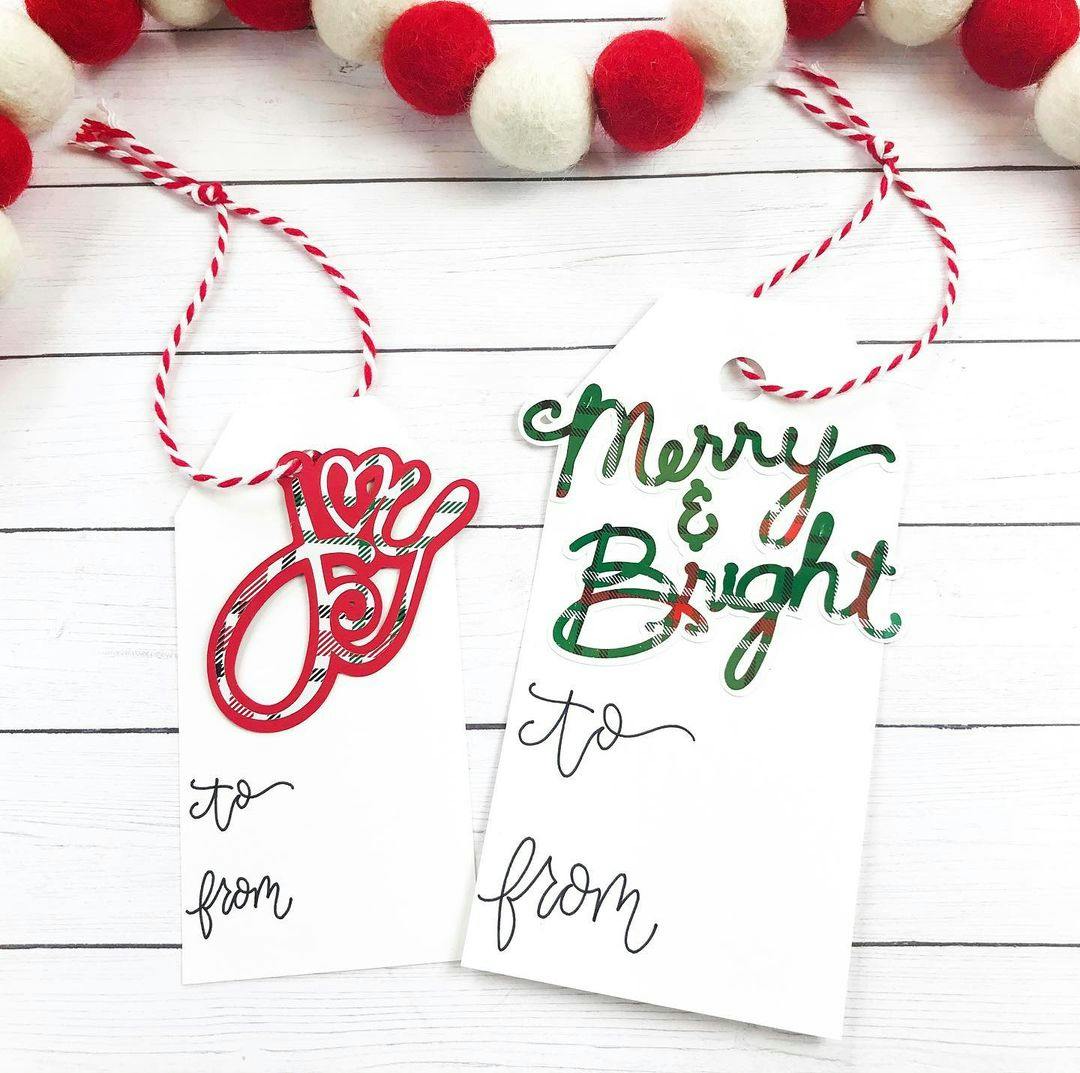 to
from
Merry
&
Bright
to
from